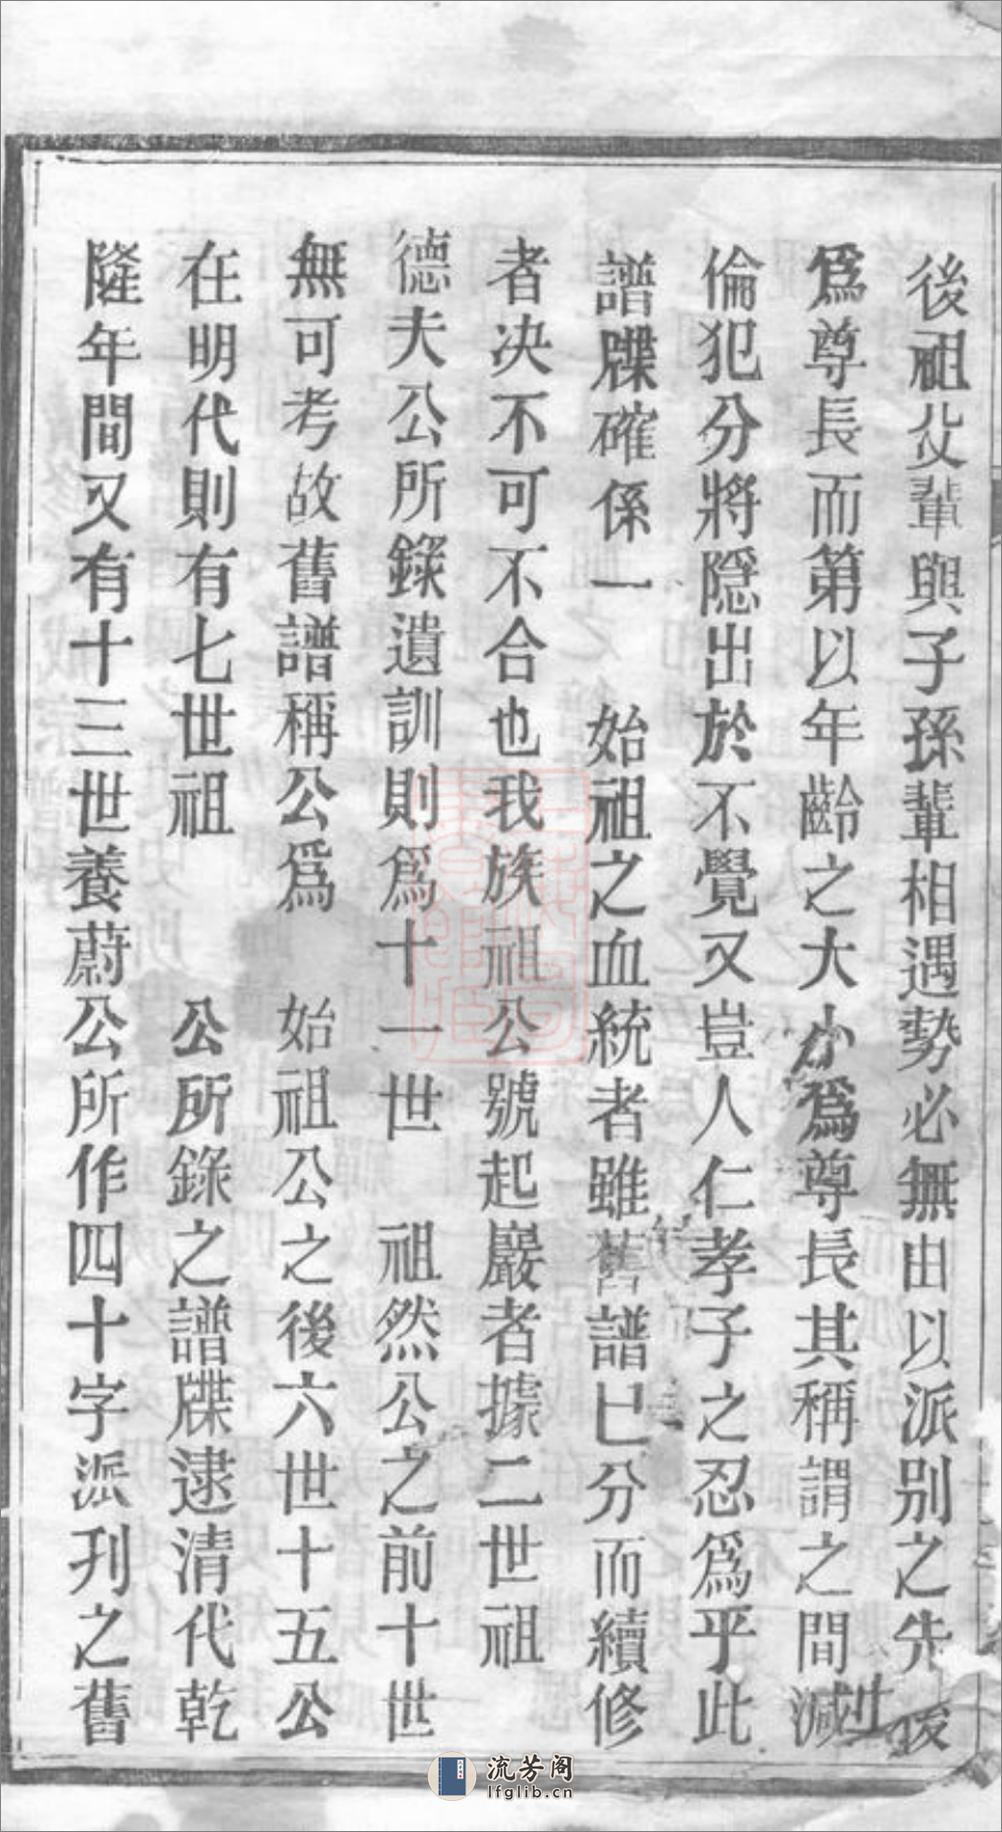 後祖父輩與子孫輩相遇勢必無由以派別之先後
爲尊長而第以年齡之大小爲尊長其稱謂之間滅
倫犯分將隱出於不覺又豈人仁孝子之忍爲乎此
譜牒確係一　始祖之血統者雖舊譜已分而續修
者決不可不合也我族祖公號起巖者據二世祖
德夫公所錄遺訓則爲十一世　祖然公之前十世
無可考故舊譜稱公爲　始祖公之後六世十五公
在明代則有七世祖　公所錄之譜牒逮清代乾
隆年間又有十三世養蔚公所作四十字派刋之舊
流芳阁
lfglib.cn